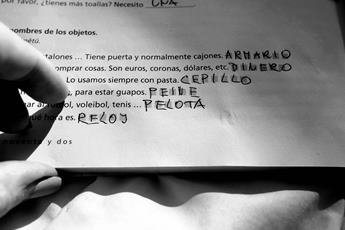 por favor, ¿tienes más toallas? Necesito UNA
nombres de los objetos.
talones ... Tiene puerta y normalmente cajones. ARMARIO
omprar cosas. Son euros, coronas, dólares, etc. DINERO
Lo usamos siempre con pasta. CEPILLO
, para estar guapos. PEINE
gar al fútbol, voleibol, tenis ... PELOTA
qué hora es. RELOJ
noventa y dos